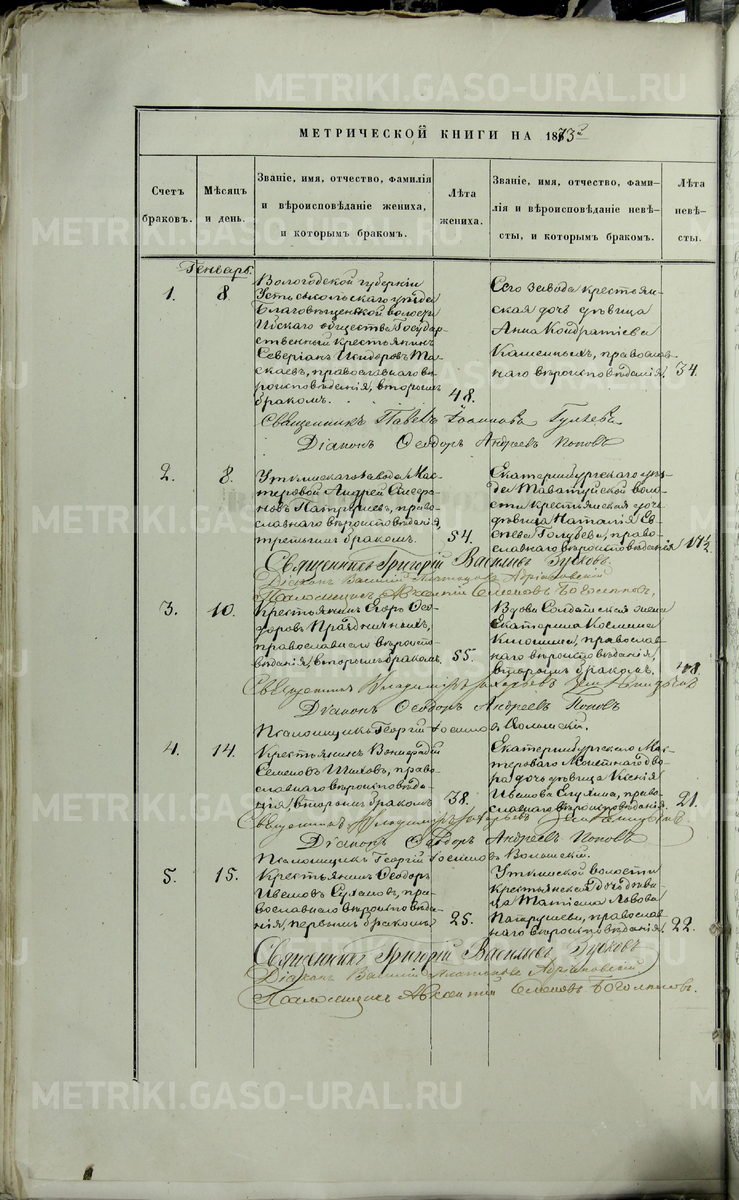 МЕТРИЧЕСКОЙ КНИГИ НА 1873й
Счетъ браковъ.
Мѣсяцъ и день.
Званіе, имя, отчество, фамилія
и вѣроисповѣданіе жениха,
и которымъ бракомъ.
Лѣта жениха.
Званіе, имя, отчество, фами-
лія и вѣроисповѣданіе невѣ-
сты, и которымъ бракомъ.
Лѣта невѣ-
сты.
Генварь.
1. 8.
Вологодской губерніи
Устьсысольскаго уѣзда
Благовѣщенской волости
общества Государ-
ственный крестьянинъ
Северіанъ
православнаго вѣ-
роисповѣданія, вторымъ
бракомъ.
48.
Сего завода крестьян-
ская дочь дѣвица
Анна Кондратіева
Каменныхъ, православ-
наго вѣроисповѣданія.
34.
Священникъ Павелъ Іоанновъ Гуляевъ
Діаконъ Ѳеодоръ Андреевъ Поповъ
2. 8.
Уткинскаго завода Мас-
теровой Андрей
Патрушевъ, право-
славнаго вѣроисповѣданія,
третьимъ бракомъ.
54.
Екатеринбургскаго уѣз-
да Таватуйской воло-
сти крестьянская дочь
дѣвица Наталія Ев-
Голубева, право-
славнаго вѣроисповѣданія
17½
Священникъ Григорій Васильевъ Зубковъ
Діаконъ Василій
Псаломщикъ Авксентій Семеновъ Боголѣповъ.
3. 10.
Крестьянинъ Егоръ Ѳео-
доровъ Праздничныхъ,
православнаго вѣроиспо-
вѣданія, вторымъ бракомъ.
55.
Вдова Солдатская жена
Екатерина Космина
православ-
наго вѣроисповѣданія,
вторымъ бракомъ.
48.
Священникъ Владимиръ Захарьевъ
Діаконъ Ѳеодоръ Андреевъ Поповъ
Псаломщикъ Георгій
4. 14.
Крестьянинъ Вонифатій
Семеновъ Шиховъ, право-
славнаго вѣроисповѣда-
нія, вторымъ бракомъ
38.
Екатеринбургскаго Мас-
тероваго Монетнаго дво-
ра дочь дѣвица Ксенія
Иванова право-
славнаго вѣроисповѣданія.
21.
Священникъ Владимиръ Захарьевъ
Діаконъ Ѳеодоръ Андреевъ Поповъ
Псаломщикъ Георгій
5. 15.
Крестьянинъ Ѳеодоръ
Ивановъ Сухановъ, пра-
вославнаго вѣроисповѣда-
нія, первымъ бракомъ.
25.
Уткинской волости
крестьянская дочь дѣви-
ца Татіана Львова
Патрушева, православ-
наго вѣроисповѣданія.
22.
Священникъ Григорій Васильевъ Зубковъ
Діаконъ Василій
Псаломщикъ Авксентій Семеновъ Боголѣповъ.
METRIKI.GASO-URAL.RU